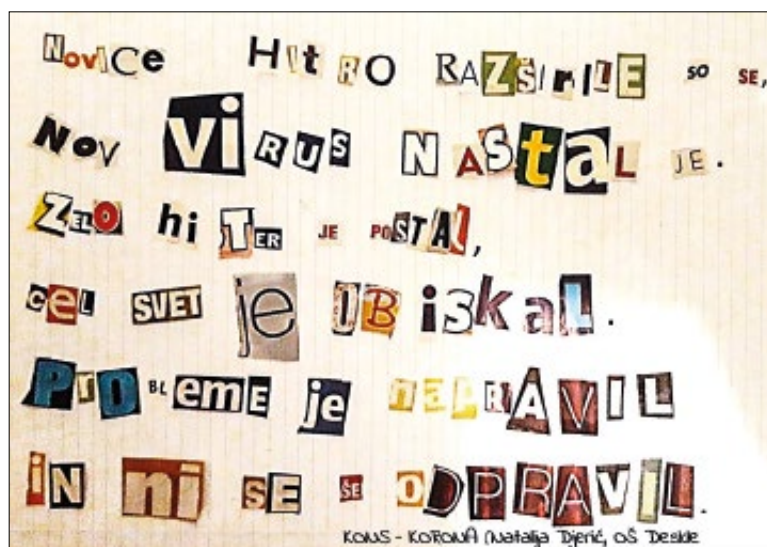 NOVICE HITRO RAZŠIRILE SO SE,
NOV VIRUS NASTAL JE.
ZELO hiTER JE POSTAL,
CEL SVET je OBiskaL.
PROBLEME je naPRAVIL
iN ni SE ŠE ODPRAViL.
KONS - KORONA (Natalija Djerić, OŠ Deskle